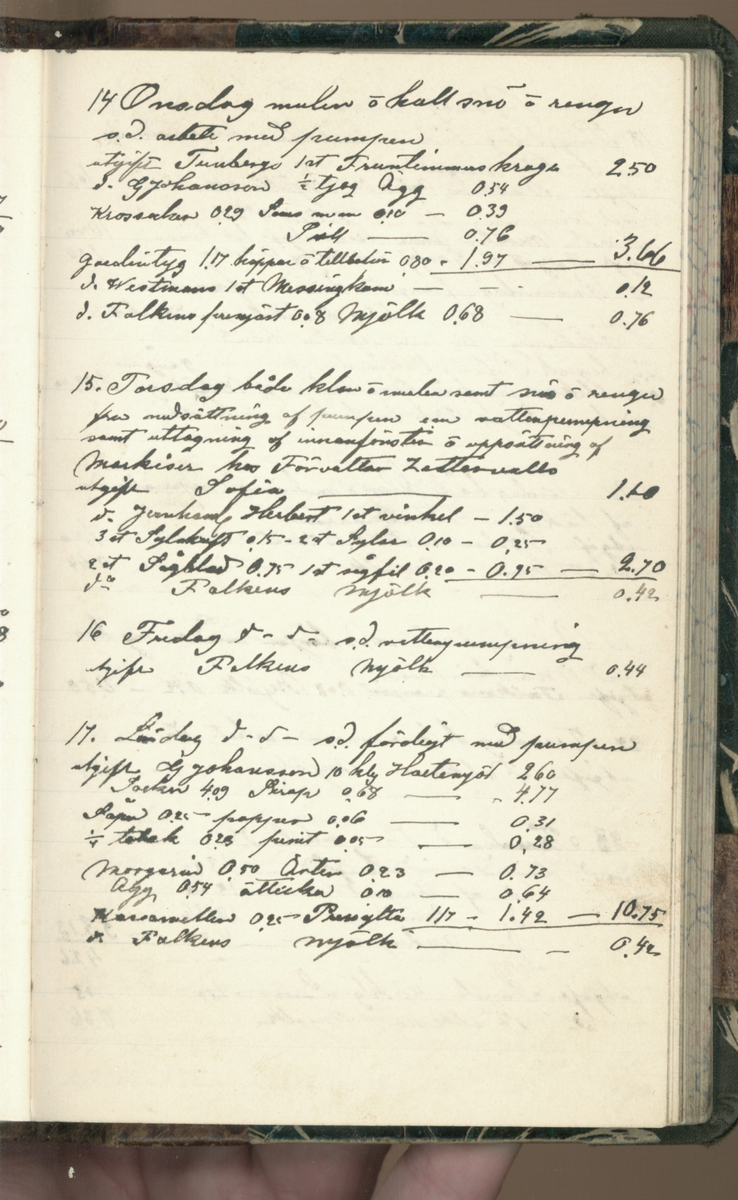 14 Onsdag mulen o kall snö o rengn
s.d. arbete med pumpen
utgift Tunbergs 1st Fruntimmerskrage 2.50
d. G Johansson ½ tjog Ägg 0.54
0.29 0.10 — 0.39
Sill — 0.76
1.17 o 0.80 - 1.97 — 3.66
d. Westmans 1st Messingkam — - - 0.12
d. Falkens 0.08 Mjölk 0.68 — 0.76
15. Torsdag både klar o mulen samt snö o rengn
fra nedsättning af pumpen em vattenpumpning
samt uttagning af innanfönster o uppsättning af
Markiser hos Förvaltar Zettervalls
utgift Sofia — 1.10
d. Jernhand Herbert 1st vinkel — 1.50
3 st Sylskaft 0.15 - 2 st Sylar 0.10 — 0.25
2 st Sågblad 0.75 1st sågfil 0.20 - 0.95 — 2.70
do Falkens Mjölk — 0.42
16 Fredag d - d - s.d. vattenpumpning
utgift Falkens Mjölk — 0.44
17. Lördag d - d - s.d. färdigt med pumpen
utgift G Johansson 10 klg Hvetemjöl 2.60
Socker 4.09 Sirap 0.68 — 4.77
Såpa 0.25 peppar 0.06 — 0.31
¼ tobak 0.23 0.05 — 0.28
Morgarin 0.50 Ärter 0.23 — 0.73
Ägg 0.54 ätticka 0.10 — 0.64
0.25 Pressylta 1.17 - 1.42 — 10.75
d. Falkens Mjölk — - 0.42